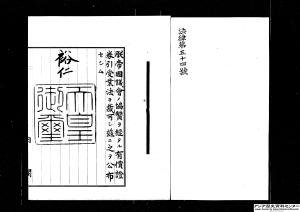 法律第五十四號
朕帝國議會ノ協贊ヲ經タル有價證
券引受業法ヲ裁可シ茲ニ之ヲ公布
セシム
裕仁
天皇
御璽
アジア歴史資料センター